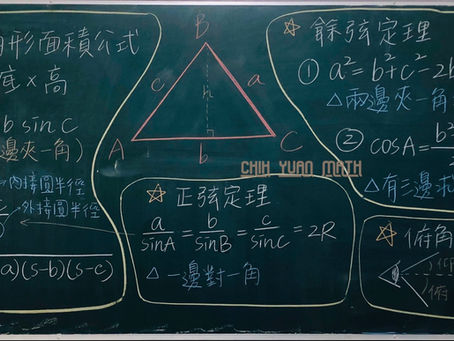 形面積公式
底×高
b sin c
邊夾一角)
內接圓半徑
外接圓半徑
a)(s-b)(s-c)
B
c
h
a
A
b
C
CHIH YUAN MATH
☆ 正弦定理
a/sinA = b/sinB = c/sinC = 2R
△ 一邊對一角
☆ 餘弦定理
① a²=b²+c²-2b
△ 兩邊夾一角
② cosA = b²
△ 有三邊求
☆ 俯角
俯